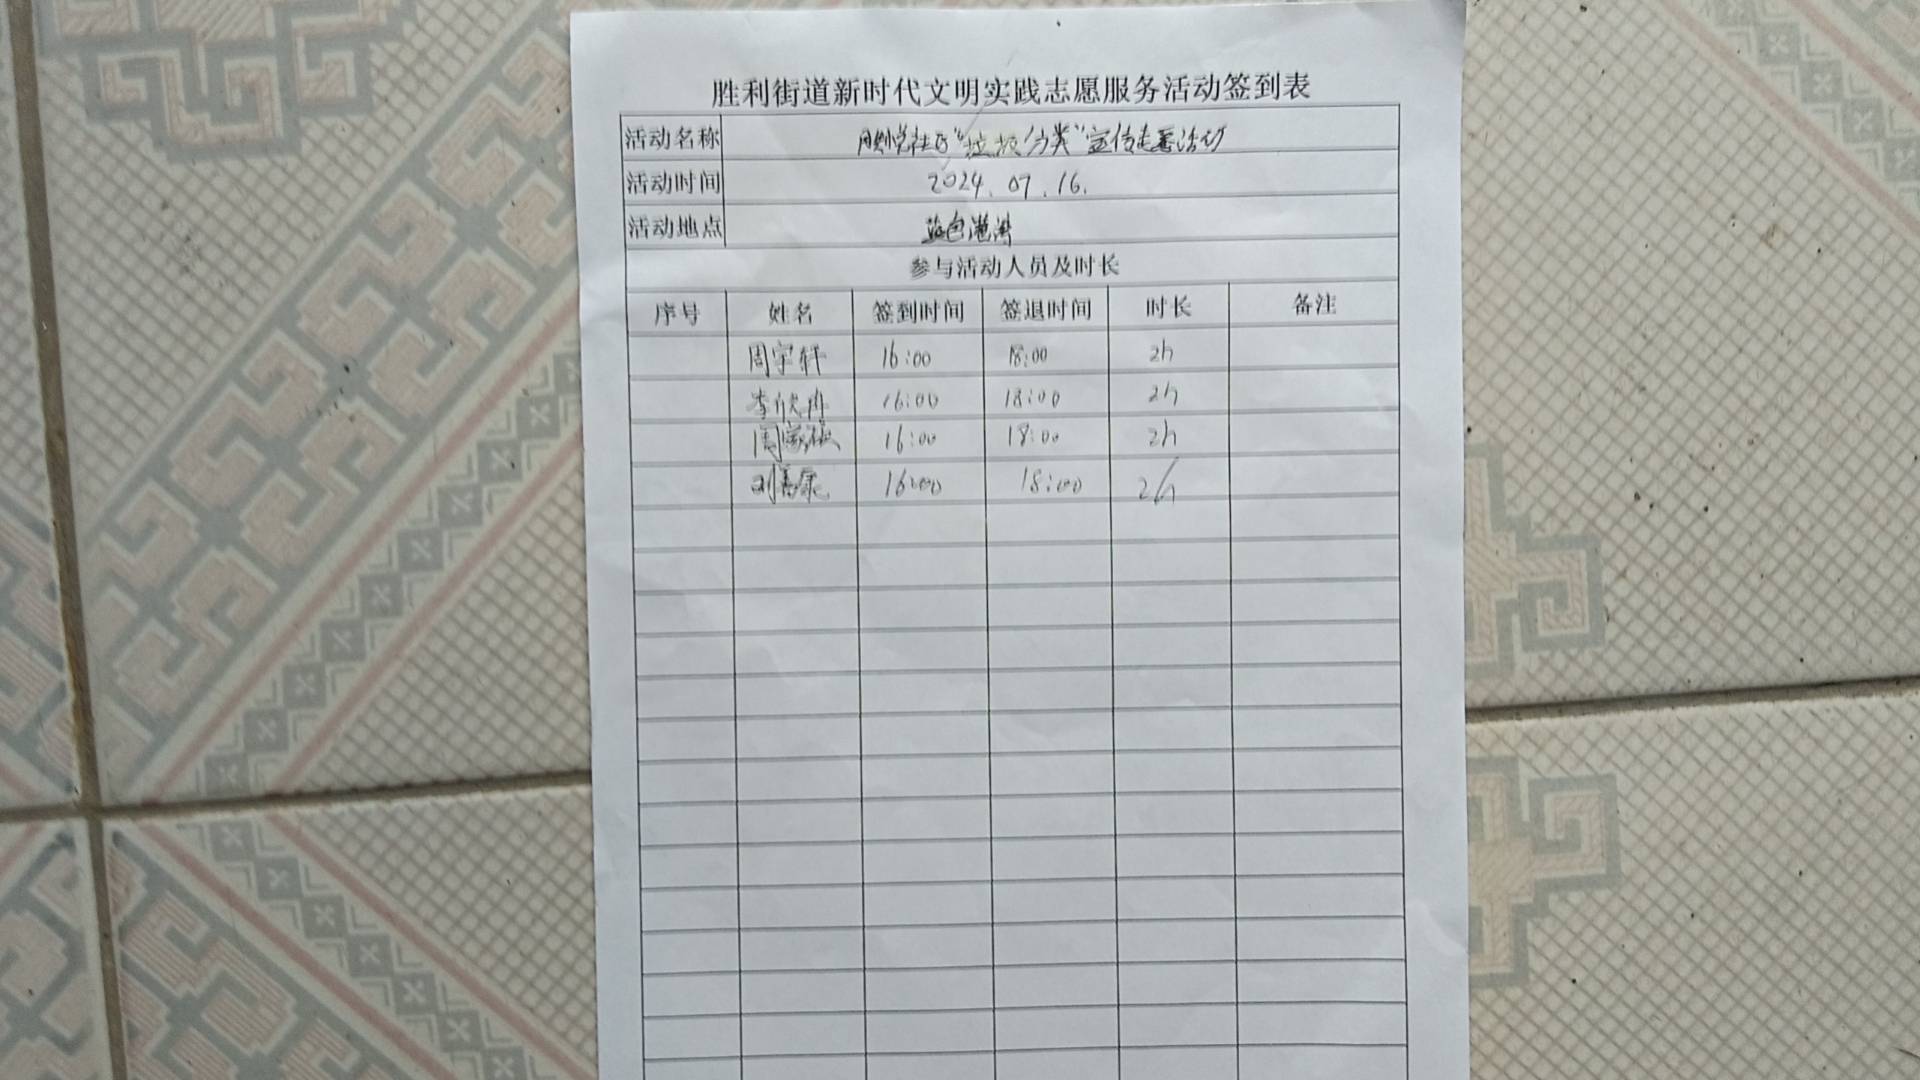 胜利街道新时代文明实践志愿服务活动签到表
活动名称 社区“垃圾分类”宣传志愿活动
活动时间 2024.07.16.
活动地点 蓝色港湾
参与活动人员及时长
序号 姓名 签到时间 签退时间 时长 备注
周宇轩 16:00 18:00 2h
李欣冉 16:00 18:00 2h
周 16:00 18:00 2h
刘 16:00 18:00 2h